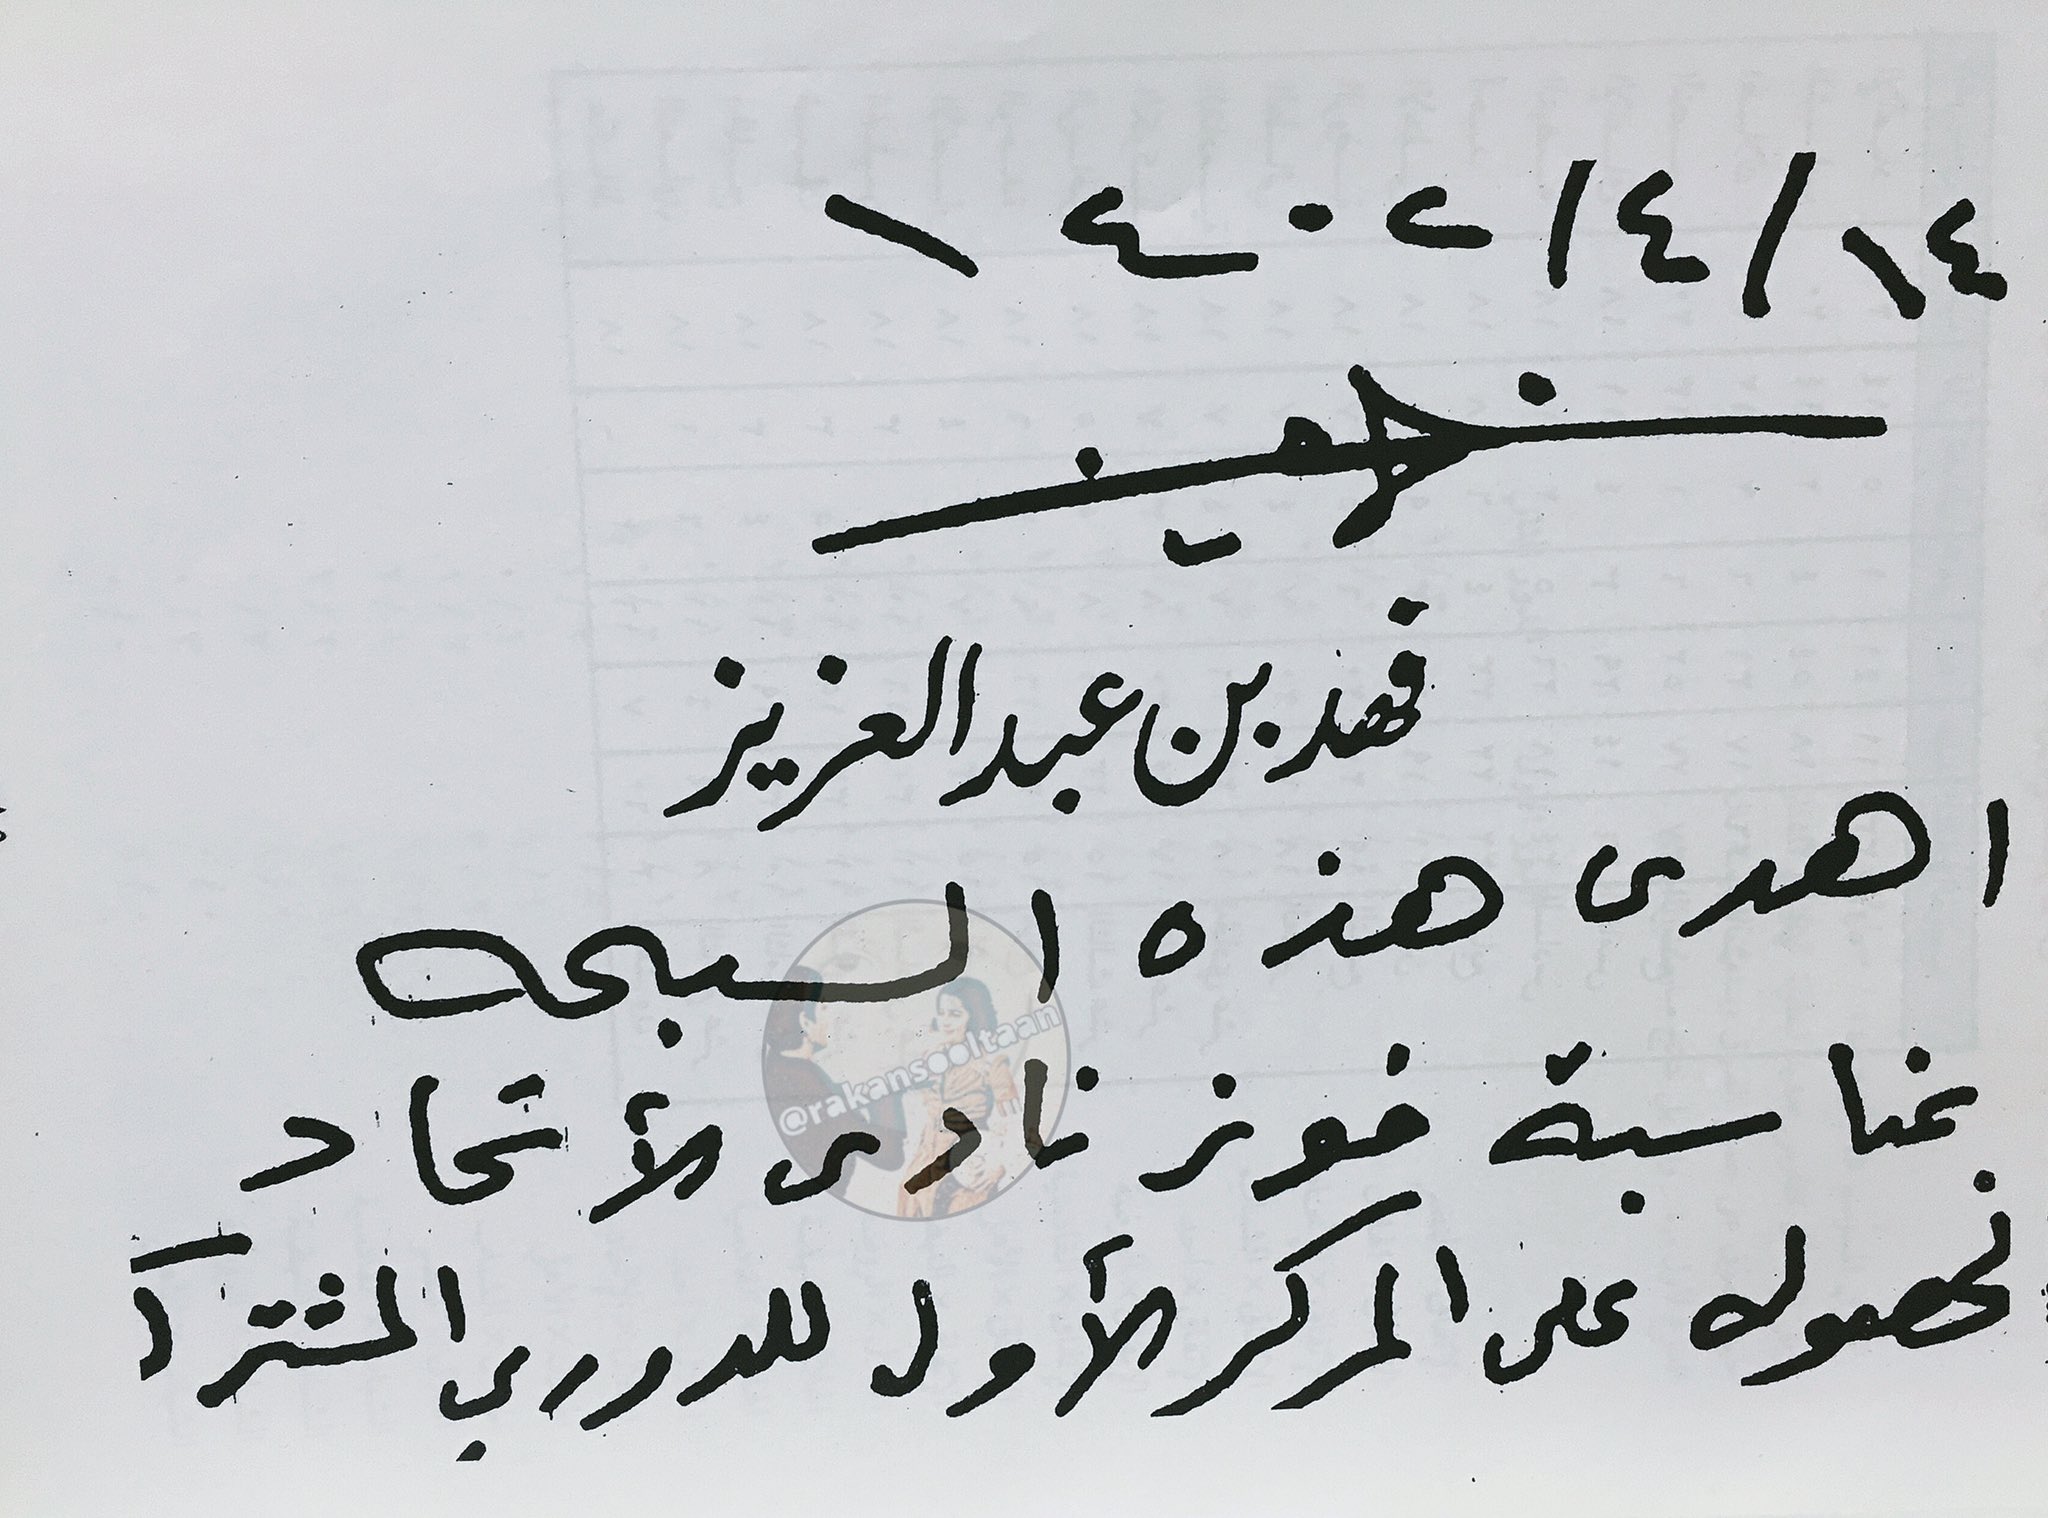 ١٤/٤/١٤٠٢
فهد بن عبد العزيز
اهدى هذه السبحه
بمناسبة فوز نادى الأتحاد
لحصوله على المركز الأول للدوري المشترك
@rakansooltaan